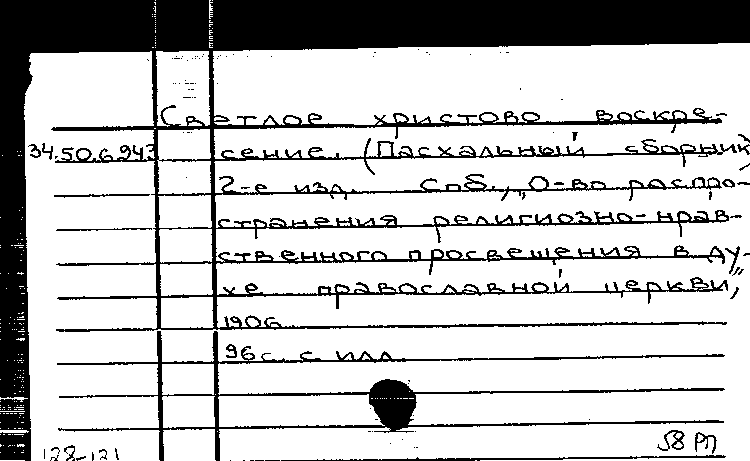 Светлое христово воскре-
34.50.6.943 сение. (Пасхальный сборник)
2-е изд. Спб., „О-во распро-
странения религиозно-нрав-
ственного просвещения в ду-
хе православной церкви",
1906
96 с. с илл.
58 РП
128-121